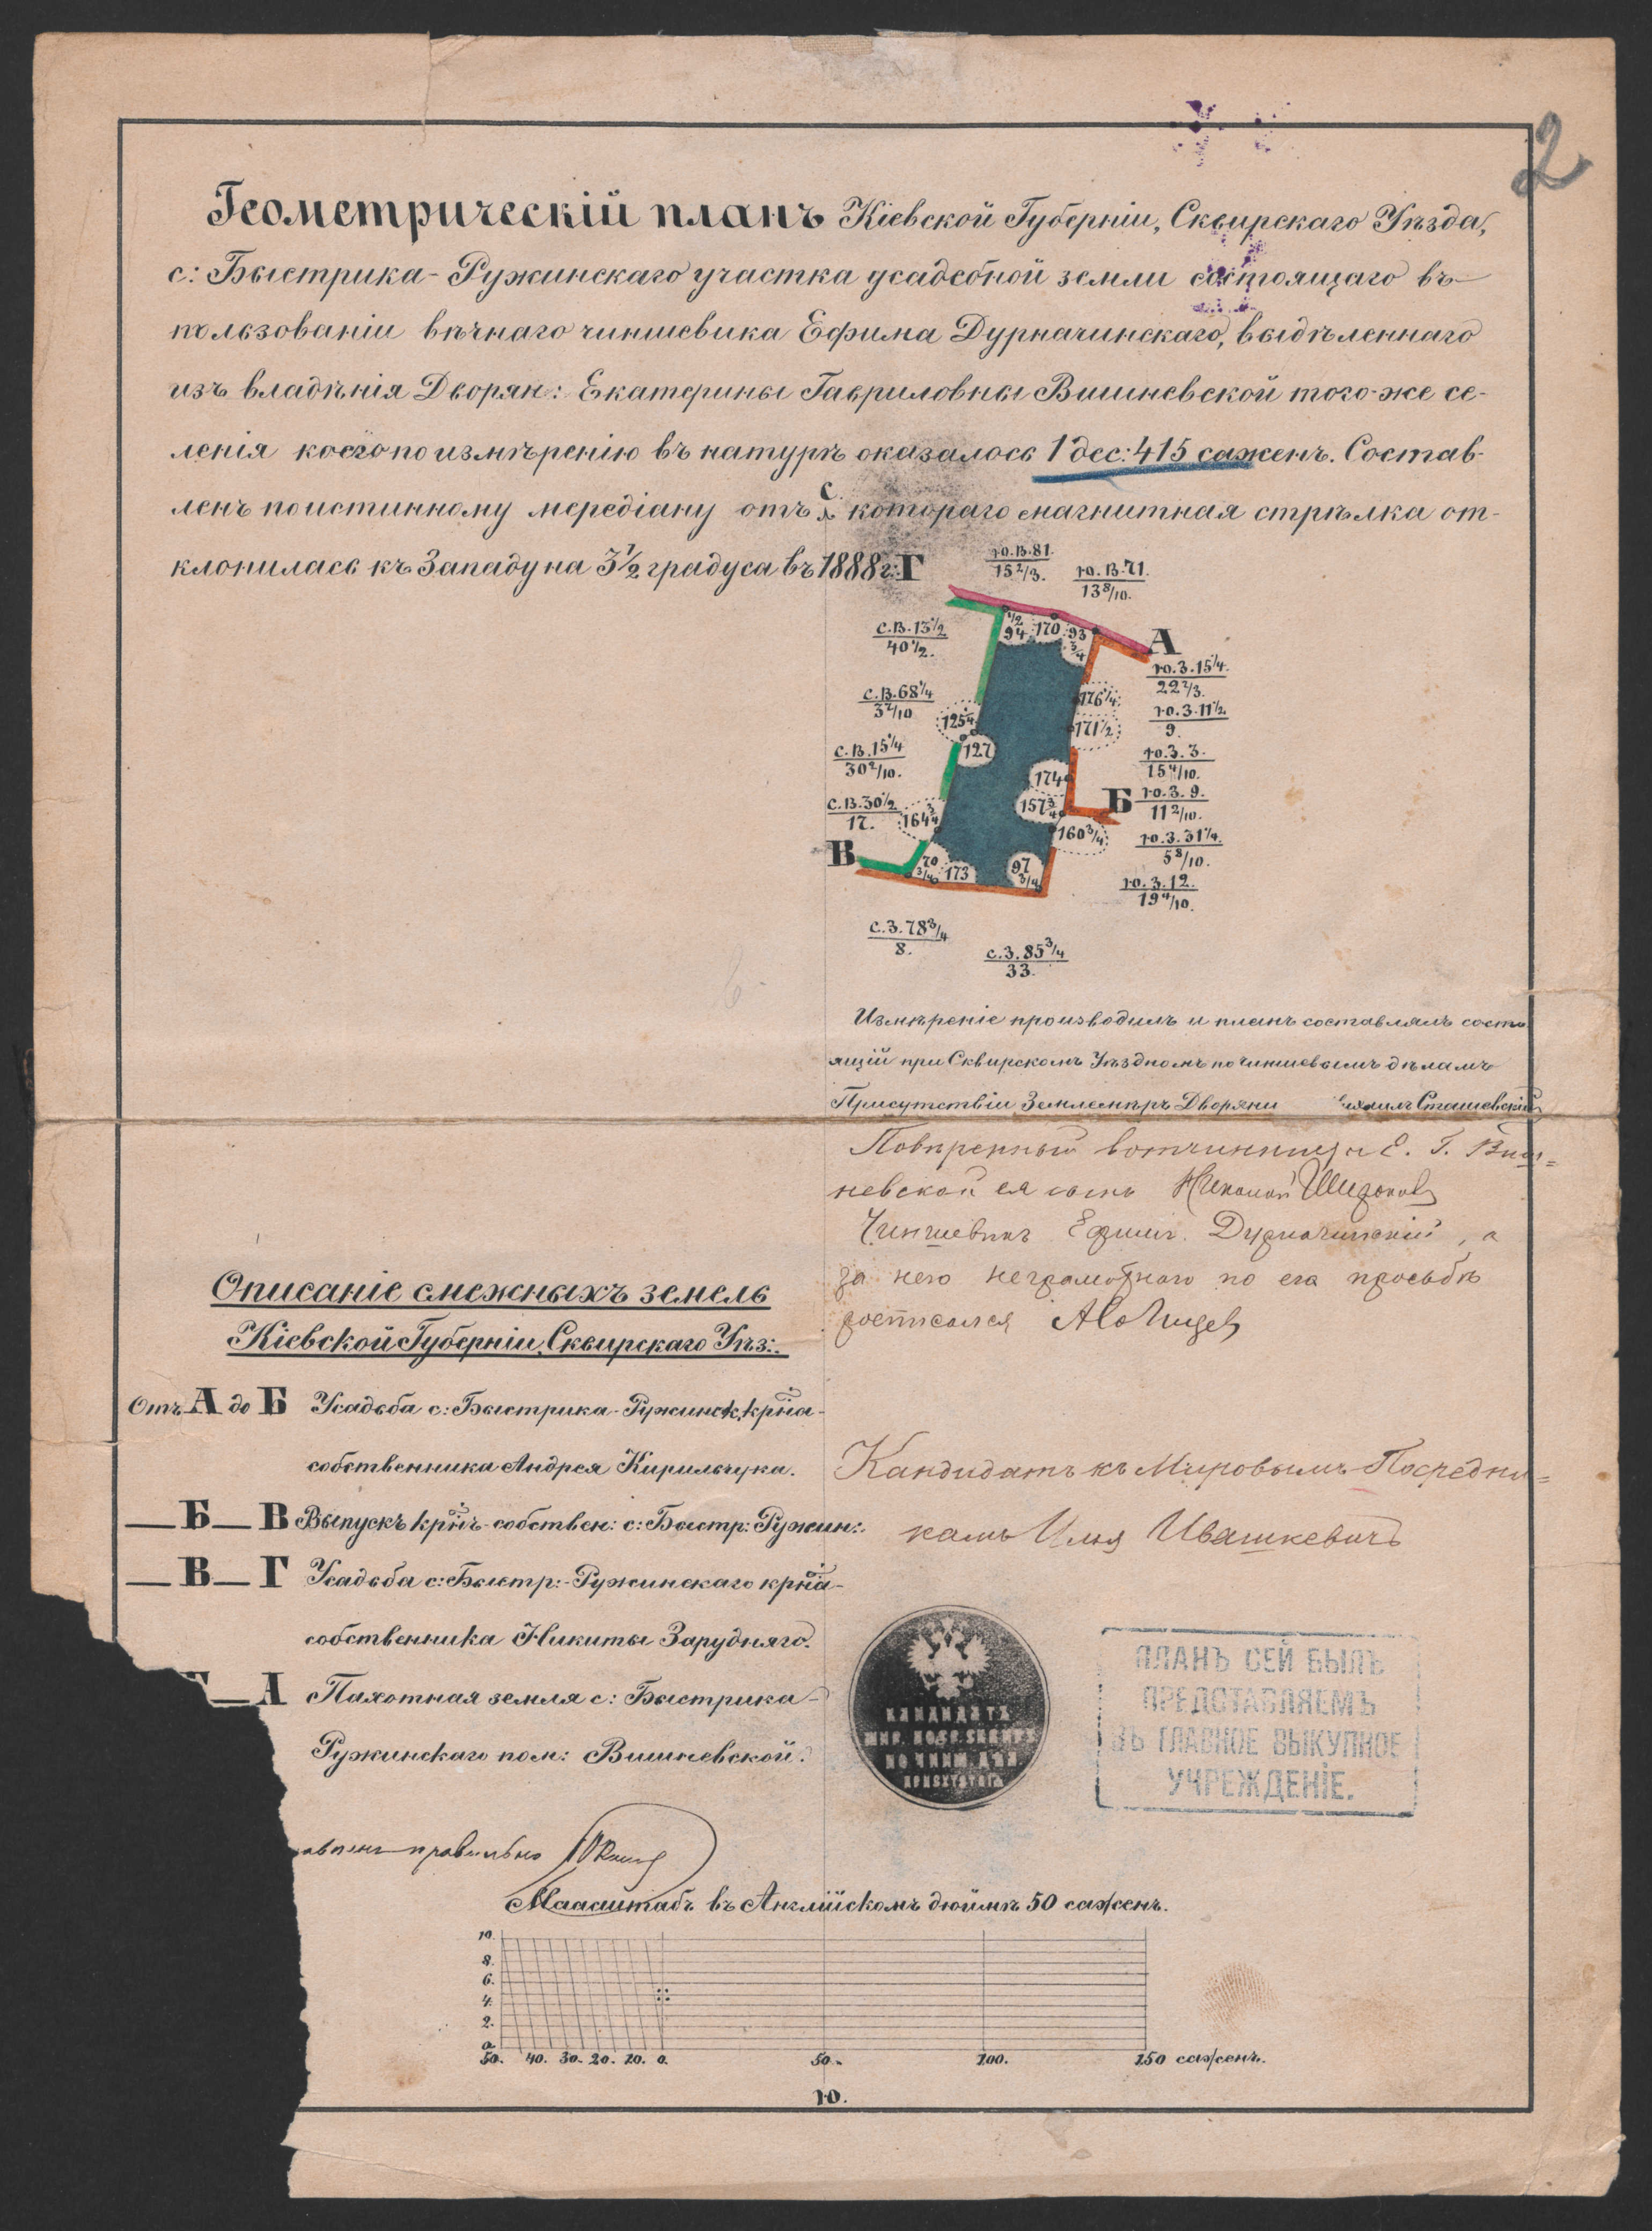 2
Геометрическій планъ Кіевской Губерніи, Сквирскаго Уѣзда,
с: Быстрика-Ружинскаго участка усадебной земли состоящаго въ
пользованіи вѣчнаго чиншевика Ефима Дурначинскаго, выдѣленнаго
изъ владѣнія Дворян: Екатерины Гавриловны Вишневской того-же се-
ленія коего по измѣренію въ натурѣ оказалось 1 дес: 415 сажень. Состав-
ленъ по истинному мередіану отъ котораго магнитная стрѣлка от-
С.
клонилась къ Западу на 3 1/2 градуса въ 1888 г:
Г
ю.В.81.
15 2/3.
ю.В.71.
13 8/10.
с.В.13 1/2
40 1/2.
1/2
94
170
93
3/4
А
ю.З.15 1/4.
22 2/3.
с.В.68 1/4
3 2/10
176 1/4
ю.З.11 1/2
9.
125 1/4
171 1/2
с.В.15 1/4
30 2/10.
127
ю.З.3.
15 4/10.
174
с.В.30 1/2
17.
164 3/4
157 3/4
Б
ю.З.9.
11 2/10.
160 3/4
ю.З.31 1/4.
5 8/10.
В
70
3/4
173
97
3/4
ю.З.12.
19 4/10.
с.З.78 3/4
8.
с.З.85 3/4
33.
Измѣреніе производилъ и планъ составлялъ состо
ящій при Сквирскомъ Уѣздномъ по чиншевымъ дѣламъ
Присутствіи Землемѣръ Дворяни Сташевскій
Повѣренный вотчинницы Е. Г. Виш=
невской ея сынъ Николай
Чиншевикъ Ефимъ Дурначинскій, а
за него неграмотнаго по его просьбѣ
росписался
Описаніе смежныхъ земель
Кіевской Губерніи, Сквирскаго Уѣз:
Отъ А до Б Усадьба с: Быстрика-Ружинск, крна-
собственника Андрея Кирильчука.
— Б — В Выпускъ крнъ-собствен: с: Быстр: Ружин:
— В — Г Усадьба с: Быстр:-Ружинскаго крна-
собственника Никиты Зарудняго.
Г — А Пахотная земля с: Быстрика-
Ружинскаго пом: Вишневской.
Кандидатъ къ Мировымъ Посредни=
камъ Илья Ивашкевичъ
КАНДИДАТА
МИР. ПОСР. СКВИР.
ПО ЧИНШ. ДѢЛ.
ПЛАНЪ СЕЙ БЫЛЪ
ПРЕДСТАВЛЯЕМЪ
ВЪ ГЛАВНОЕ ВЫКУПНОЕ
УЧРЕЖДЕНІЕ.
авленъ правильно
Маасштабъ въ Англійскомъ дюймѣ 50 сажень.
10.
8.
6.
4.
2.
0.
50. 40. 30. 20. 10. 0. 50. 100. 150 сажень.
Ю.